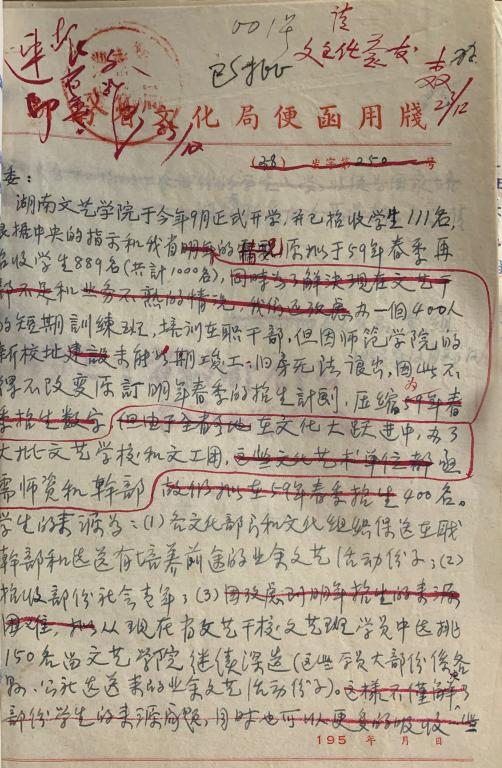 001号
已打160
文化局便函用牋
(58) 发字第250号
委：
湖南文艺学院于今年9月正式开学，并已招收学生111名，
根据中央的指示和我省明年的情况原拟于59年春季再
招收学生889名(共计1000名)，同时为了解决现在文艺干
部不足和业务不熟的情况，我们还考虑办一个400人
的短期训练班，培训在职干部，但因师范学院的
新校址建設未能如期竣工，旧房无法讓出，因此不
得不改变原訂明年春季的招生計劃，压缩为59年春
季招生数字 但由于全省各地在文化大跃进中，办了
大批文艺学校和文工团，这些文化艺术单位都亟
需师资和幹部 故仍拟在59年春季招生400名。
学生的来源为：(1)各文化部门和文化组织保送在职
幹部和选送有培养前途的业余文艺活动份子；(2)
招收部份社会青年；(3)因考虑到明年招生的来源
困难，拟从现在省文艺干校文艺班学员中选挑
150名留文艺学院继续深造(这些学员大部份係各
县、公社选送来的业余文艺活动份子)。这样不僅解决
部份学生的来源问题，同时也可以更多的吸收一些
195 年 月 日